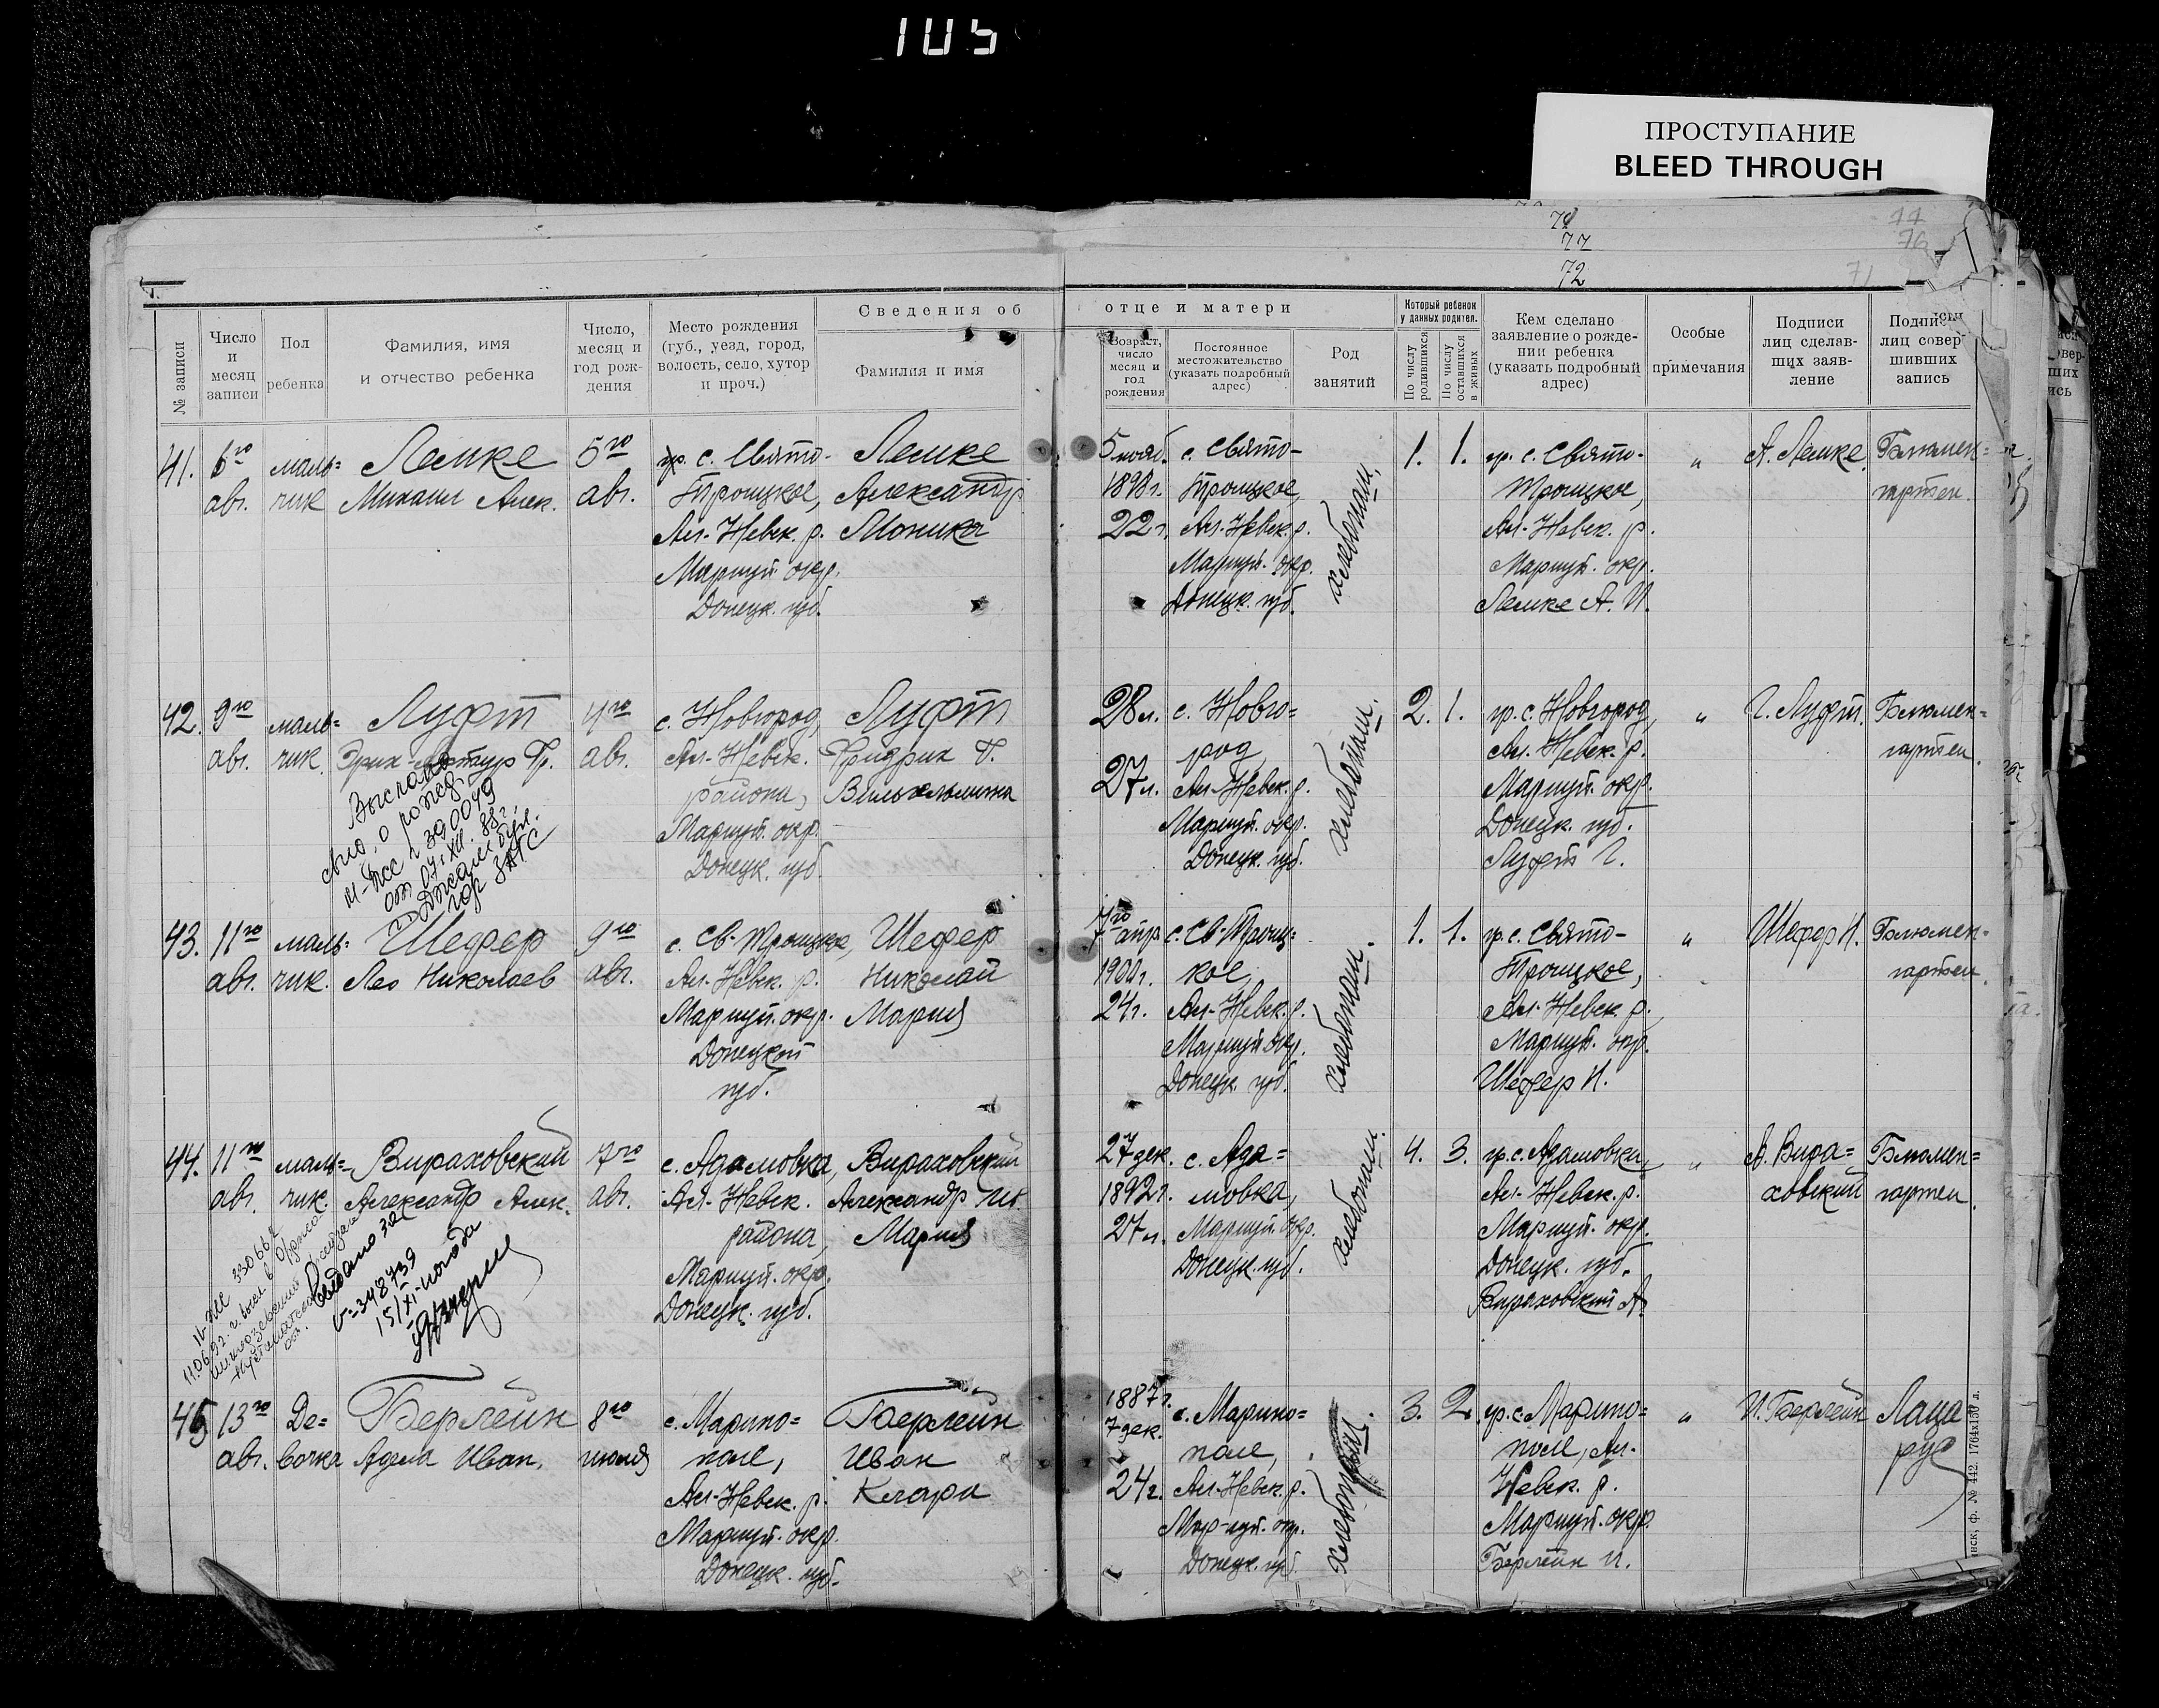 105
ПРОСТУПАНИЕ
BLEED THROUGH
77
72
71
№ записи
Число
и
месяц
записи
Пол
ребенка
Фамилия, имя
и отчество ребенка
Число,
месяц и
год рож-
дения
Место рождения
(губ., уезд, город,
волость, село, хутор
и проч.)
Сведения об
Фамилия и имя
отце и матери
Возраст,
число
месяц и
год
рождения
Постоянное
местожительство
(указать подробный
адрес)
Род
занятий
Который ребенок
у данных родител.
По числу
родившихся
По числу
оставшихся
в живых
Кем сделано
заявление о рожде-
нии ребенка
(указать подробный
адрес)
Особые
примечания
Подписи
лиц сделав-
ших заяв-
ление
Подписи
лиц совер-
шивших
запись
41.
6го
авг.
маль=
чик
Лемке
Михаил Алек.
5го
авг.
гр. с. Свято-
Троицкое,
Ал-Невск. р.
Мариуп. окр.
Донецк. губ.
Лемке
Александр
Моника
5 нояб.
22 г.
с. Свято-
Троицкое,
Ал-Невск. р.
Мариуп. окр.
Донецк. губ.
хлебопаш.
1.
1.
гр. с. Свято-
Троицкое,
Ал-Невск. р.
Мариуп. окр.
Лемке А. И.
"
А. Лемке
Блюмен=
гартен.
42.
9го
авг.
маль=
чик.
Луфт
Эрих-Артур Фр.
4го
авг.
с. Новгород,
Ал-Невск.
района,
Мариуп. окр.
Донецк. губ.
Луфт
Фридрих Г.
Вильхельмина
28 л.
27 л.
с. Новго=
род
Ал-Невск. р.
Мариуп. окр.
Донецк. губ.
хлебопаш.
2.
1.
гр. с. Новгород,
Ал-Невск. р.
Мариуп. окр.
Донецк. губ.
Луфт Г.
"
Г. Луфт.
Блюмен=
гартен.
Выслано
свид. о рожд.
390049
от 07.XII.88г.
Джамбул.
гор ЗАГС
43.
11го
авг.
маль=
чик.
Шефер
Лео Николаев
9го
авг.
с. Св-Троицкое,
Ал-Невск. р.
Мариуп. окр.
Донецкой
губ.
Шефер
Николай
Мария
7 апр.
1900г.
24г.
с. Св-Троиц=
кое,
Ал-Невск. р.
Мариуп окр.
Донецк. губ.
хлебопаш.
1.
1.
гр. с. Свято-
Троицкое,
Ал-Невск. р.
Мариуп. окр.
Шефер Н.
"
Шефер Н.
Блюмен=
гартен
44.
11го
авг.
маль=
чик.
Вираховский
Александр Алек.
7го
авг.
с. Адамовка,
Ал-Невск.
района,
Мариуп. окр.
Донецк. губ.
Вираховский
Александр Ив.
Мария
27 дек.
1892г.
27 л.
с. Ада=
мовка,
Мариуп. окр.
Донецк. губ.
хлебопаш.
4.
3.
гр. с. Адамовки,
Ал-Невск. р.
Мариуп. окр.
Донецк. губ.
Вираховский А.
"
А. Вира=
ховский
Блюмен=
гартен.
330667
11.06.92 г. высл. в
348739
15/XI-
45
13го
авг.
Де=
вочка
Берлейн
Адела Иван.
8го
июля
с. Марино=
поле,
Ал-Невск. р.
Мариуп. окр.
Донецк. губ.
Берлейн
Иван
Клара
1887г.
7 дек.
24 г.
с. Марино=
поле,
Ал-Невск. р.
Мар-уп. окр.
Донецк. губ.
хлебопаш.
3.
2.
гр. с. Марино=
поле, Ал-
Невск. р.
Мариуп. окр.
Берлейн И.
"
И. Берлейн
ф. № 442. 1764х150 л.